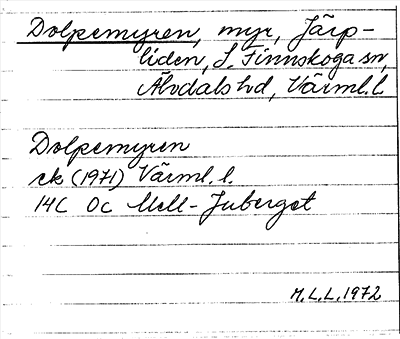 Dolpemyren, myr, Järp-
liden, S. Finnskoga sn,
Älvdals hd, Värml. l.
Dolpemyren
ek (1971) Värml. l.
14C Oc Mell-Juberget
M.L.L. 1972